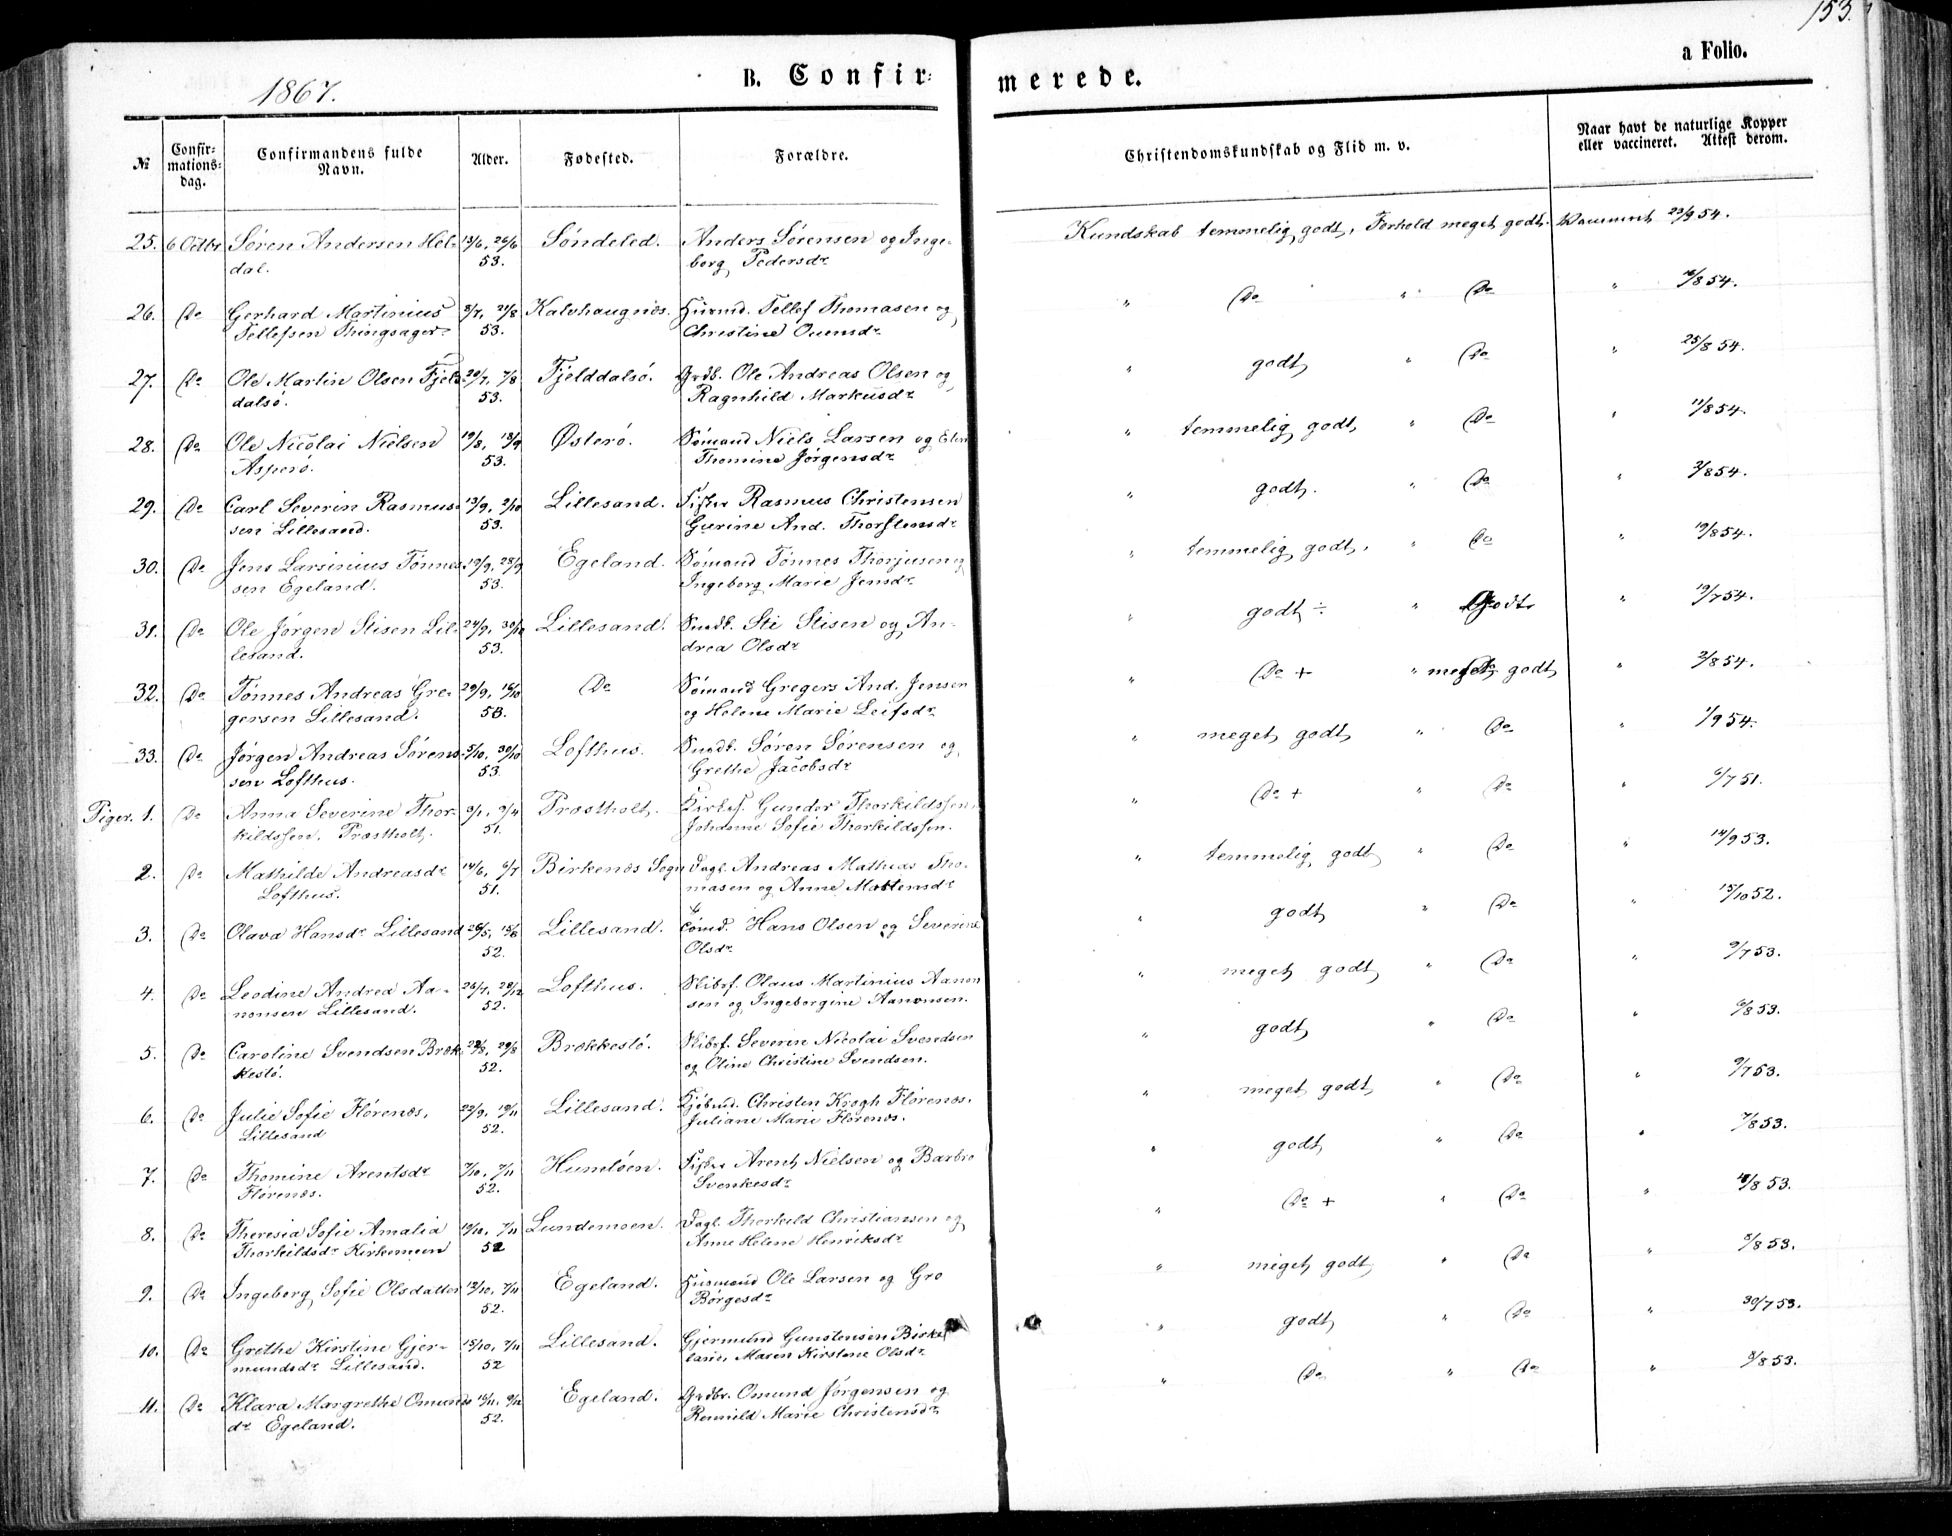 153.
a Folio.
1867.
B. Confir= merede.
№ Confir-mations-dag. Confirmandens fulde Navn. Alder. Fødested. Forældre. Christendomskundskab og Flid m. v. Naar havt de naturlige Kopper eller vaccineret. Attest derom.
25. 6 Octbr Søren Andersen Hel- 13/6, 26/6 Søndeled. Anders Sørensen og Inge- Kundskab temmelig godt, Forhold meget godt. 23/9 54.
dal. 53. borg Pedersdr
26. Do Gerhard Martinius 3/7, 21/8 Kalvhaugnæs. Husmd. Tellef Thomasen og " Do " Do " /8 54.
Tellefsen Thingsager 53. Christine
27. Do Ole Martin Olsen Fjeld- 20/7, 7/8 Fjelddalsø. Grdb. Ole Andreas Olsen og " godt " Do " 25/8 54.
dalsø. 53. Ragnhild Markusdr
28. Do Ole Nicolai Nielsen 19/8, 13/9 Østerø. Sømand Niels Larsen og Elen " temmelig godt, " Do " 11/8 54.
Asperø. 53. Thomine Jørgensdr
29. Do Carl Severin Rasmus- 13/9, 2/10 Lillesand. Fisker Rasmus Christensen " godt. " Do " 3/8 54.
sen Lillesand. 53. Gurine And. Thorstensdr
30. Do Jens Larsinius Tønnes- 19/9, 28/9 Egeland. Sømand Tønnes Thorjusen og " temmelig godt, " Do " 19/8 54.
sen Egeland. 53. Ingeborg Marie Jensdr
31. Do Ole Jørgen Stisen Lil- 24/9, 30/10 Lillesand. Sti Stisen og An- " godt ÷ " Godt " 19/7 54.
lesand. 53. drea Olsdr
32. Do Tønnes Andreas Gre- 29/9, 16/10 Do Sømand Gregers And. Jensen " Do + " meget godt " 2/8 54.
gersen Lillesand. 53. og Helene Marie Leifsdr
33. Do Jørgen Andreas Sørens- 5/10, 30/10 Lofthus. Søren Sørensen og " meget godt " Do " 1/9 54.
sen Lofthus. 53. Grethe Jacobsdr
Piger. 1. Do Anna Severine Thor- 3/1, 9/4 Præstholt. Kirkes. Gunder Thorkildssen " Do + " Do " 6/7 51.
kildssen, Præstholt. 51. Johanne Sofie Thorkildssen.
2. Do Mathilde Andreasdr 14/6, 6/7 Birkenæs Sogn Dagl. Andreas Mathias Tho- " temmelig godt " Do " 14/9 53.
Lofthus. 51. masen og Anne Mortensdr
3. Do Olava Hansdr Lillesand 26/5, 15/8 Lillesand. Sømd. Hans Olsen og Severine " godt " Do " 15/10 52.
52. Olsdr
4. Do Leodine Andrea Aa- 26/7, 28/12 Lofthus. Skibsf. Olaus Martinius Aanon " meget godt " Do " 9/7 53.
nonsen Lillesand. 52. sen og Ingeborgine Aanonsen.
5. Do Caroline Svendsen Bræk- 22/8, 29/8 Brækkestø. Skibsf. Severin Nicolai Svendsen " godt " Do " 6/8 53.
kestø. 52. og Oline Christine Svendsen.
6. Do Julie Sofie Flørenæs, 22/9, 19/11 Lillesand. Kjøbmd. Christen Krogh Flørenæs. " meget godt, " Do " 9/7 53.
Lillesand 52. Juliane Marie Flørenæs.
7. Do Thomine Arentsdr 7/10, 7/11 Humløen. Fisker Arent Nielsen og Barbro " godt, " Do " 7/8 53.
Flørenæs. 52. Svenkesdr
8. Do Theresia Sofie Amalia 19/10, 7/11 Lundemoen. Dagl. Thorkild Christiansen og " Do + " Do " 18/8 53.
Thorkildsdr Kirkemoen 52 Anne Helene Henriksdr
9. Do Ingeborg Sofie Olsdatter 13/10, 7/11 Egeland. Husmand Ole Larsen og Gro " meget godt " Do " 8/8 53.
52. Børgesdr
10. Do Grethe Kirstine Gjer- 15/10, 7/11 Lillesand. Gjermund Gunstensen Birke " godt " Do " 30/7 53.
mundsdr Lillesand. 52 land, Maren Kirstine Olsdr
11. Do Klara Margrethe Omunds 15/11, 9/12 Egeland. Grdbr. Omund Jørgensen og " Do " Do " 8/8 53.
dr Egeland. 52. Marie Christensdr